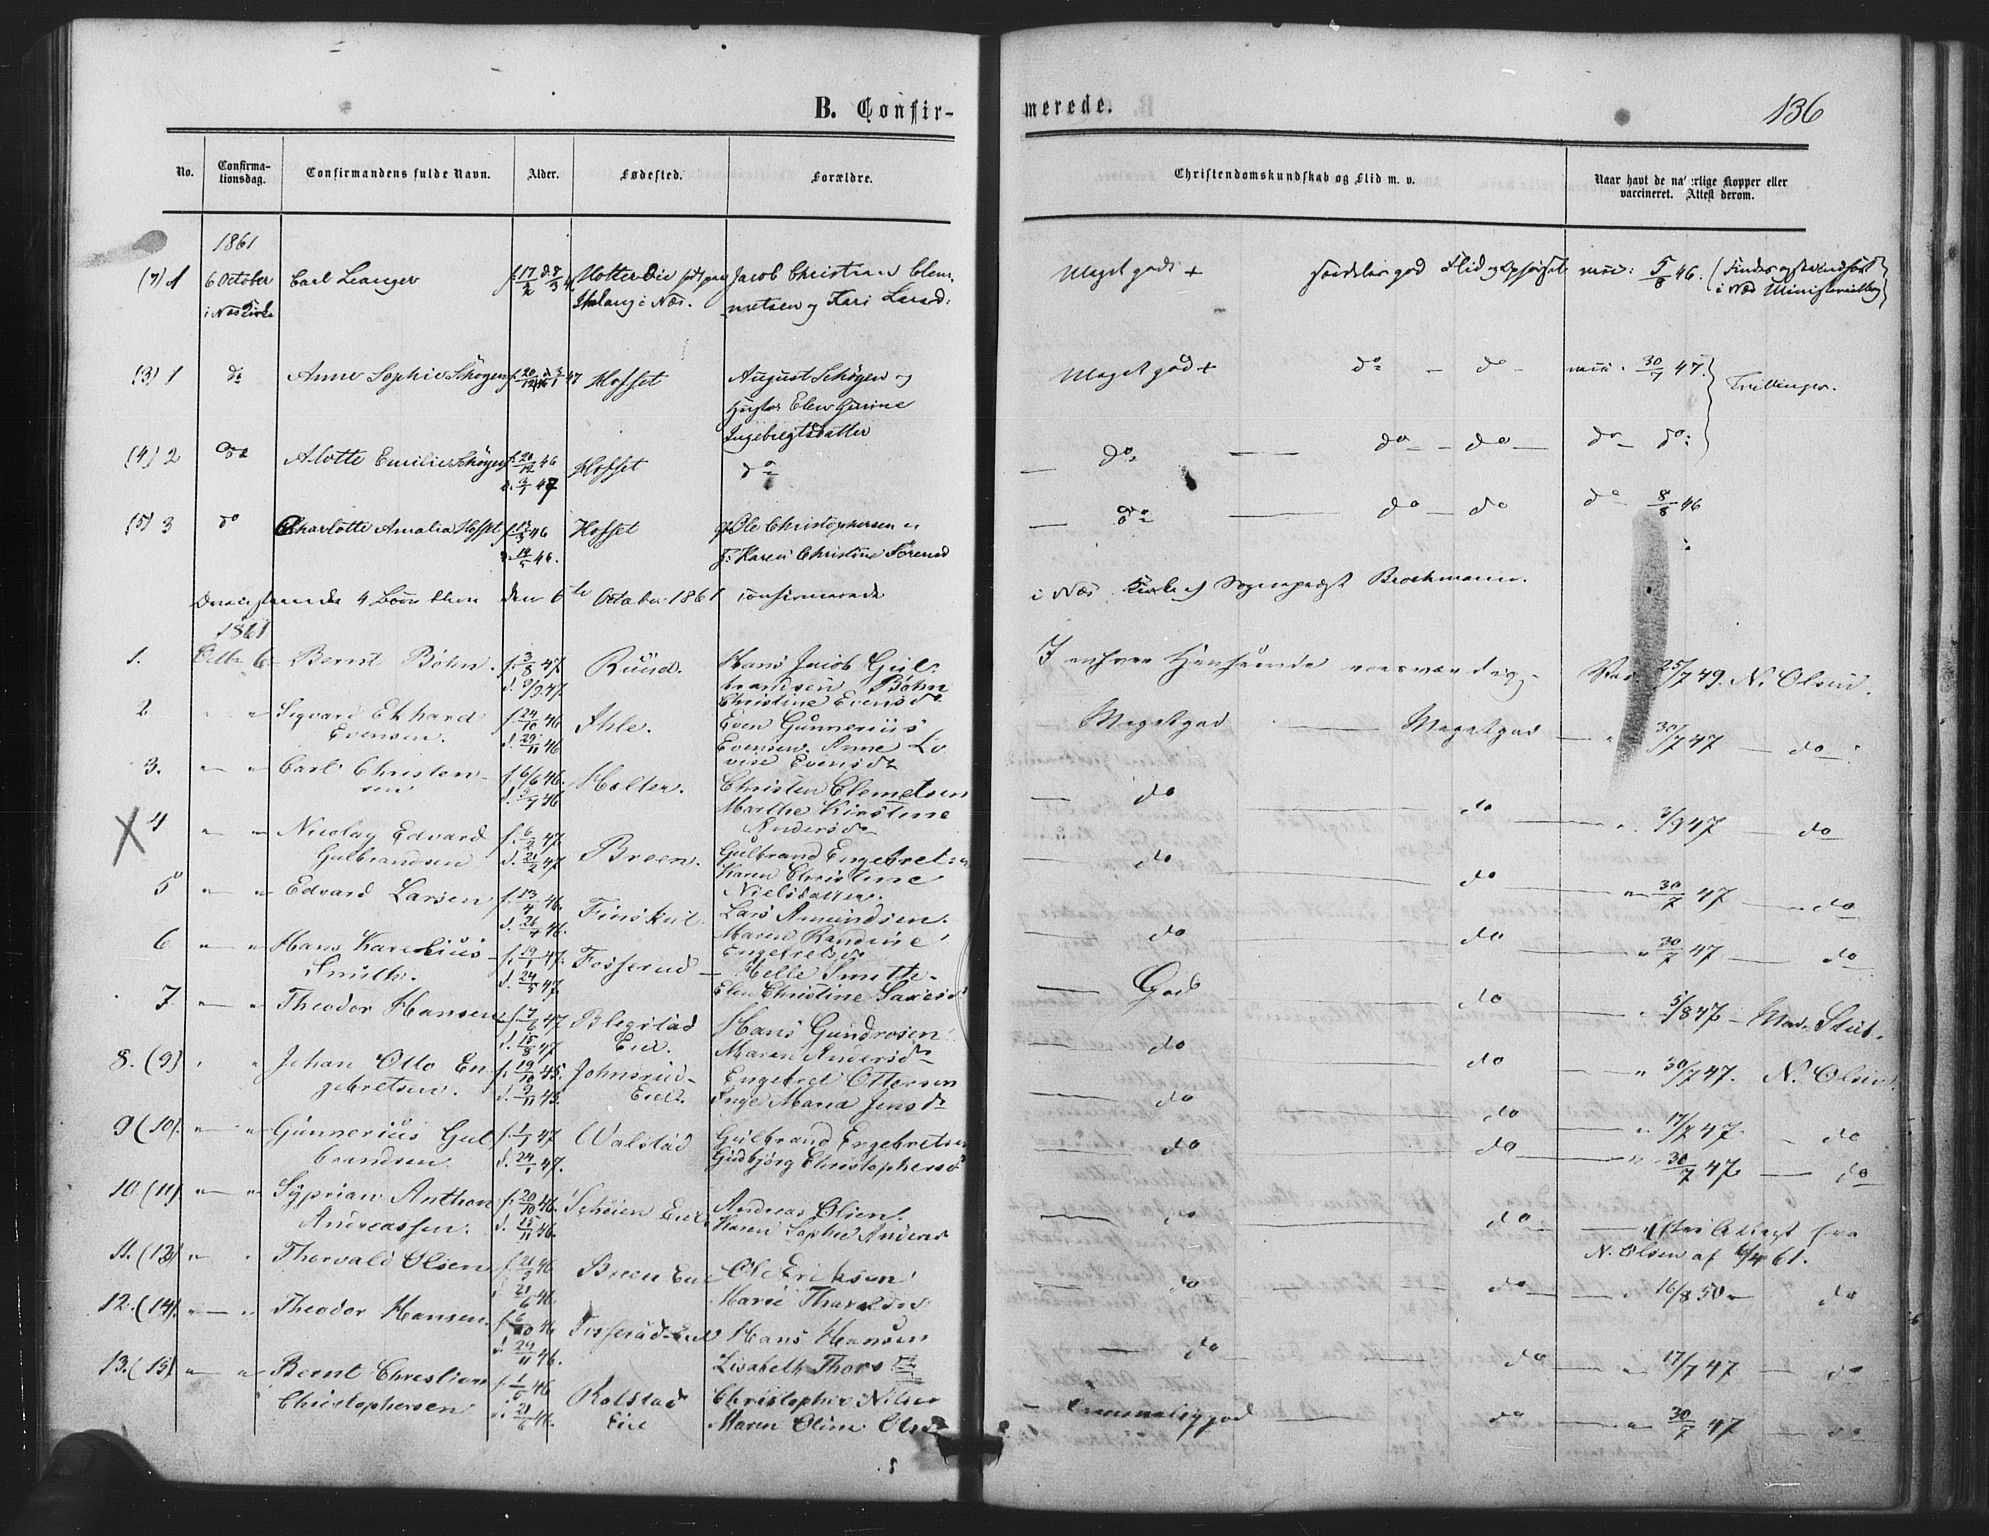 B. Confir-
merede.
136
No.
Confirma-
tionsdag.
Confirmandens fulde Navn.
Alder.
Fødested.
Forældre.
Christendomskundskab og Flid m. v.
Naar havt de naturlige Kopper eller
vaccineret. Attest derom.
1861
(7) 1 6 October Carl Langer f. 17/2 d. 8/3 46 Jacob Christian Clem-
i Næs Kirke i Næs. metsen og Kari Larsd:
Meget god + særdeles god Flid og Opførsel vacc: 5/8 46.
i Næs Ministerialbog
(3) 1 do Anne Sophie Schøgen f. 20/12 46 d. 3/1 47 Hofset August Schøgen og
Hustru Elen Gurine
Ingebregtsdatter
Meget god + do - do - vacc. 30/7 47. Trillinger.
(4) 2 do Alotte Emilie Schøgen f. 20/12 46 Hofset do
d. 3/1 47
do do - do do - do:
(5) 3 do Charlotte Amalia Hofset Hofset Ole Christophersen
Karen Christine Sørensd
do do - do do 8/8 46
4 Børn bleve den 6te October 1861 confirmerede
i Næs Kirke af Sognepræst Brochmann.
1861
1. Octbr 6 Bernt Bøhn. f. 3/8 47 Ruud. Hans Jacob Gul-
d. 9/9 47 brandsen Bøhn
Christine Evensdr
I enhver Henseende roesværdig. Vac 25/7 49. N. Olsen.
2 " " Sigvard Ekhard f. 24/10 46 Ihle. Even Gunnerius
Evensen. d. 29/11 46 Evensen. Anne Lo-
vise Evensdr
Megetgod Megetgod " 30/7 47 do
3. " " Carl Christen- f. 6/6 46. Holter. Christen Clemetsen
sen Marthe Kirstine
Andersdr
do do " 3/9 47 do
X 4 " " Nicolay Edvard f. 6/2 47. Breen. Gulbrand Engebretsen
Gulbrandsen d. 21/2 47. Karen Christine
Nielsdatter.
do do " 30/7 47 do
5 " " Edvard Larsen f. 13/4 46. Lars Amundsen.
d. 26/4 46. Maren Randine
Engebretsdr
do do " 30/7 47 do
6 " " Hans Karelius f. 19/1 47. Fosserud Helle Smith.
Smith. d. 24/5 47. Elen Christine
God do " 5/8 47
7 " " Theodor Hansen f. 7/6 47 Blegstad Hans Gundrosen
d. 15/8 47 Eie. Maren Andersdr
do do " 30/7 47. N. Olsen
8. (9) " " Johan Otto En- f. 19/10 45. Johnsrud- Engebret Ottersen
gebretsen. d. 9/11 45. Eie. Inge Maria Jensdr
do do 17/7 47. do
9 (10). " " Gunnerius Gul- f. 1/1 47 Wolstad Gulbrand Engebretsen
brandsen d. 24/1 47. Gudbjørg Christophersdr
do do " 30/7 47 do
10 (11) " " Syprian Anthon f. 20/10 46. Schøien Eie Andreas Olsen.
Andreassen. d. 15/11 46. Karen Sophie Andersd
do do efter Attest fra
N. Olsen af 6/4 61.
11. (12) " " Thorvald Olsen f. 21/3 46 Breen Eie Ole Eriksen
21/6 46. Marie Tharaldsdr
do do " 16/8 50 do
12. (14). " " Theodor Hansen. f. 6/10 46 Fosserud-Eie Hans Hansen
d. 29/11 46. Lisabeth Thorsdr
do do " 17/7 47 do
13. (15) " " Bernt Christian f. 1/6 46 Rolstad Christopher Nilsen
Christophersen d. 21/6 46. Eie Maren Oline Olsdr
Temmeliggod do " 30/7 47 do